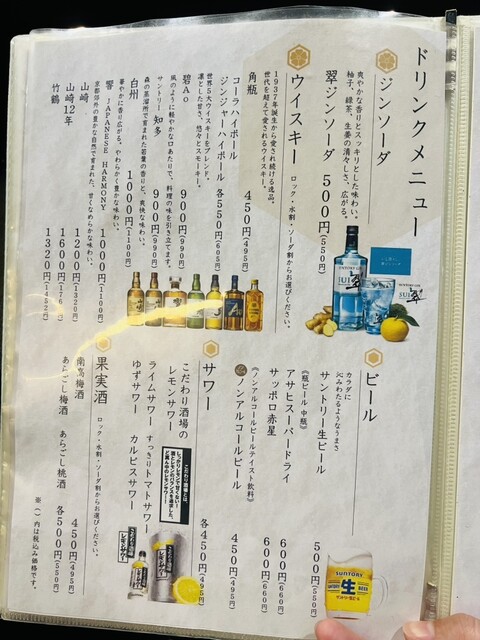 ドリンクメニュー
ジンソーダ
爽やかな香りとスッキリとした味わい。
柚子、緑茶、生姜の清々しさ、広がる。
翠ジンソーダ 500円(550円)
ウイスキー ロック・水割・ソーダ割からお選びください。
1937年誕生から愛され続ける逸品。
世代を超えて愛されるウイスキー。
角瓶 450円(495円)
コーラハイボール
ジンジャーハイボール 各550円(605円)
世界5大ウイスキーをブレンド。
凛とした甘さ、悠々とスモーキー。
碧Ao 900円(990円)
風のように軽やかな口あたりで、料理の味を引き立てます。
サントリー 知多 900円(990円)
森の蒸溜所で育まれた若葉の香りと、爽快な味わい。
白州 1000円(1100円)
華やかに香り広がる、やわらかく豊かな味わい。
響 JAPANESE HARMONY 1000円(1100円)
京都郊外の豊かな自然で育まれた、甘くなめらかな味わい。
山崎 1200円(1320円)
山崎12年 1600円(1760円)
竹鶴 1320円(1452円)
SUNTORY GIN
SUI
翠
SUI
ビール
カラダに
沁みわたるようなうまさ
サントリー生ビール 500円(550円)
《瓶ビール 中瓶》
アサヒスーパードライ 600円(660円)
サッポロ赤星 600円(660円)
《ノンアルコールビールテイスト飲料》
ノンアルコールビール 450円(495円)
SUNTORY
生
BEER
サントリー生ビール
サワー
こだわり酒場の
レモンサワー
ライムサワー すっきりトマトサワー
ゆずサワー カルピスサワー 各450円(495円)
こだわり酒場とは、
しっかりレモンで甘くない!
お酒とレモンのバランスを追求した、
ど真ん中のレモンサワー!
果実酒 ロック・水割・ソーダ割からお選びください。
南高梅酒 450円(495円)
あらごし梅酒 あらごし桃酒 各500円(550円)
※( )内は税込み価格です。